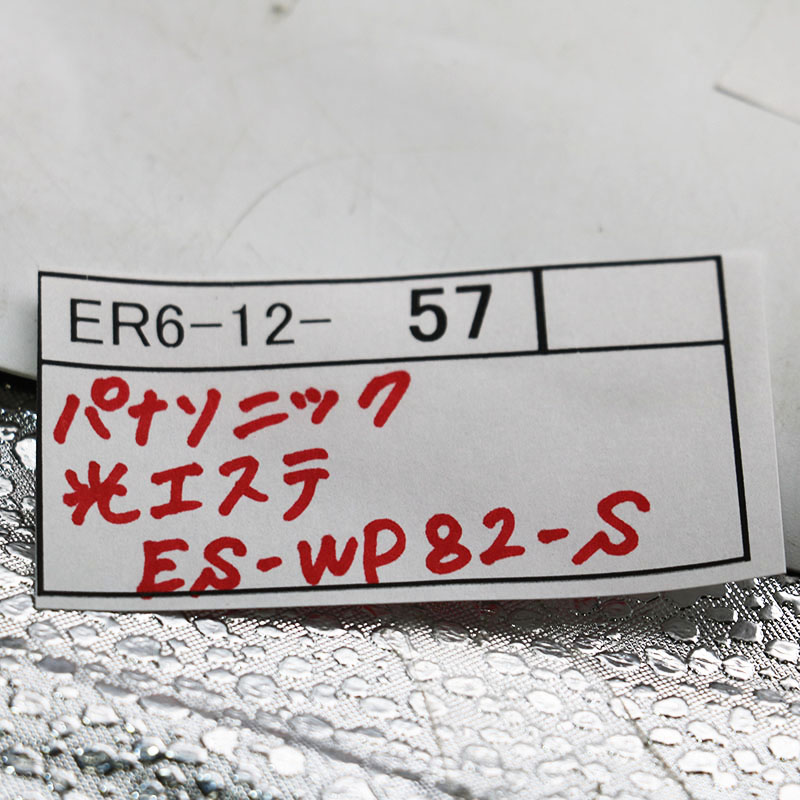 ER6-12- 57
パナソニック
光エステ
ES-WP82-S